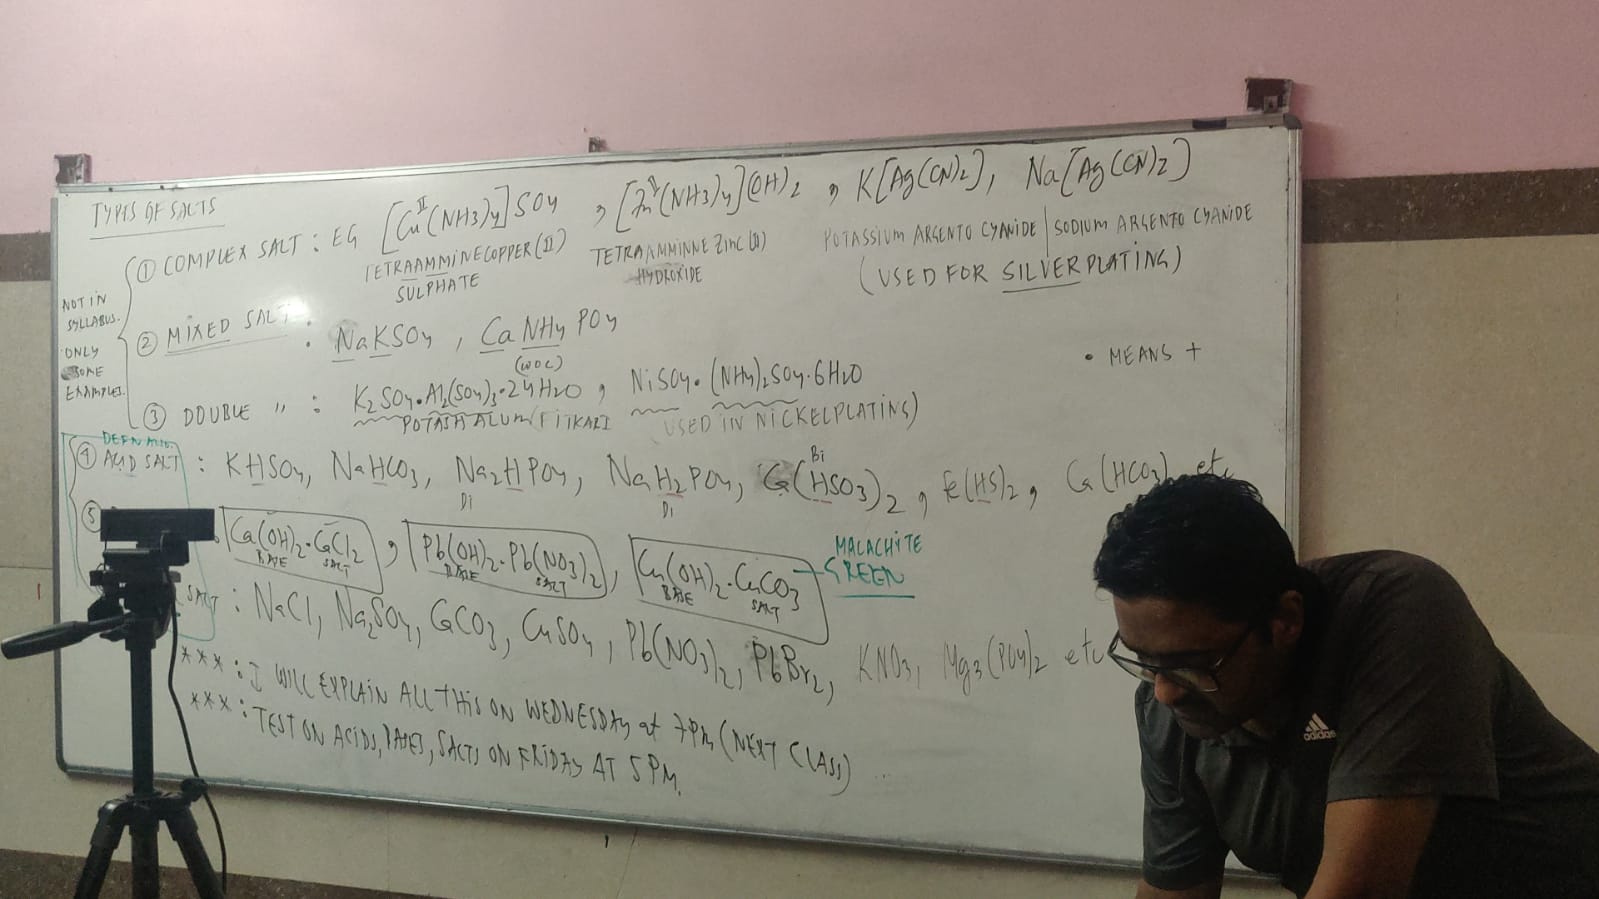 TYPES OF SALTS
NOT IN SYLLABUS. ONLY SOME EXAMPLES.
① COMPLEX SALT : EG [Cu^II(NH3)4]SO4 , [Zn^II(NH3)4](OH)2 , K[Ag(CN)2], Na[Ag(CN)2]
TETRAAMMINECOPPER(II) SULPHATE
TETRAAMMINNE ZINC (II) HYDROXIDE
POTASSIUM ARGENTO CYANIDE | SODIUM ARGENTO CYANIDE
(USED FOR SILVERPLATING)
② MIXED SALT : NaKSO4 , CaNH4PO4
• MEANS +
③ DOUBLE " : K2SO4.Al2(SO4)3.24H2O , NiSO4.(NH4)2SO4.6H2O
POTASH ALUM (FITKARI
(USED IN NICKELPLATING)
④ ACID SALT : KHSO4, NaHCO3, Na2HPO4, NaH2PO4, Ca(HSO3)2 , Fe(HS)2 , Ca(HCO3) etc
Di Di Bi
⑤ Ca(OH)2.CaCl2 , Pb(OH)2.Pb(NO3)2 , Cu(OH)2.CuCO3 MALACHITE GREEN
BASE SALT BASE SALT BASE SALT
SALT : NaCl, Na2SO4, CaCO3, CuSO4, Pb(NO3)2, PbBr2, KNO3, Mg3(PO4)2 etc
*** : I WILL EXPLAIN ALL THIS ON WEDNESDAY at 7PM (NEXT CLASS)
*** : TEST ON ACIDS, BASES, SALTS ON FRIDAY AT 5 PM.
adidas